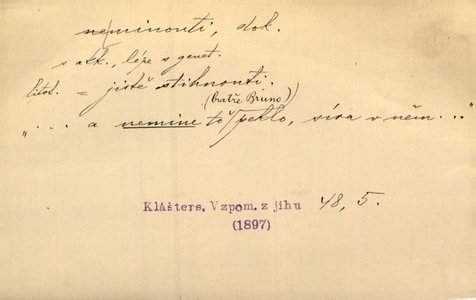 neminouti, dok.
s akk., lépe s genet.
= jistě stihnouti.
(bratře Bruno)
"... a nemine tě / peklo, síra v něm..."
Klášterе. Vzpom. z jihu 48, 5.
(1897)